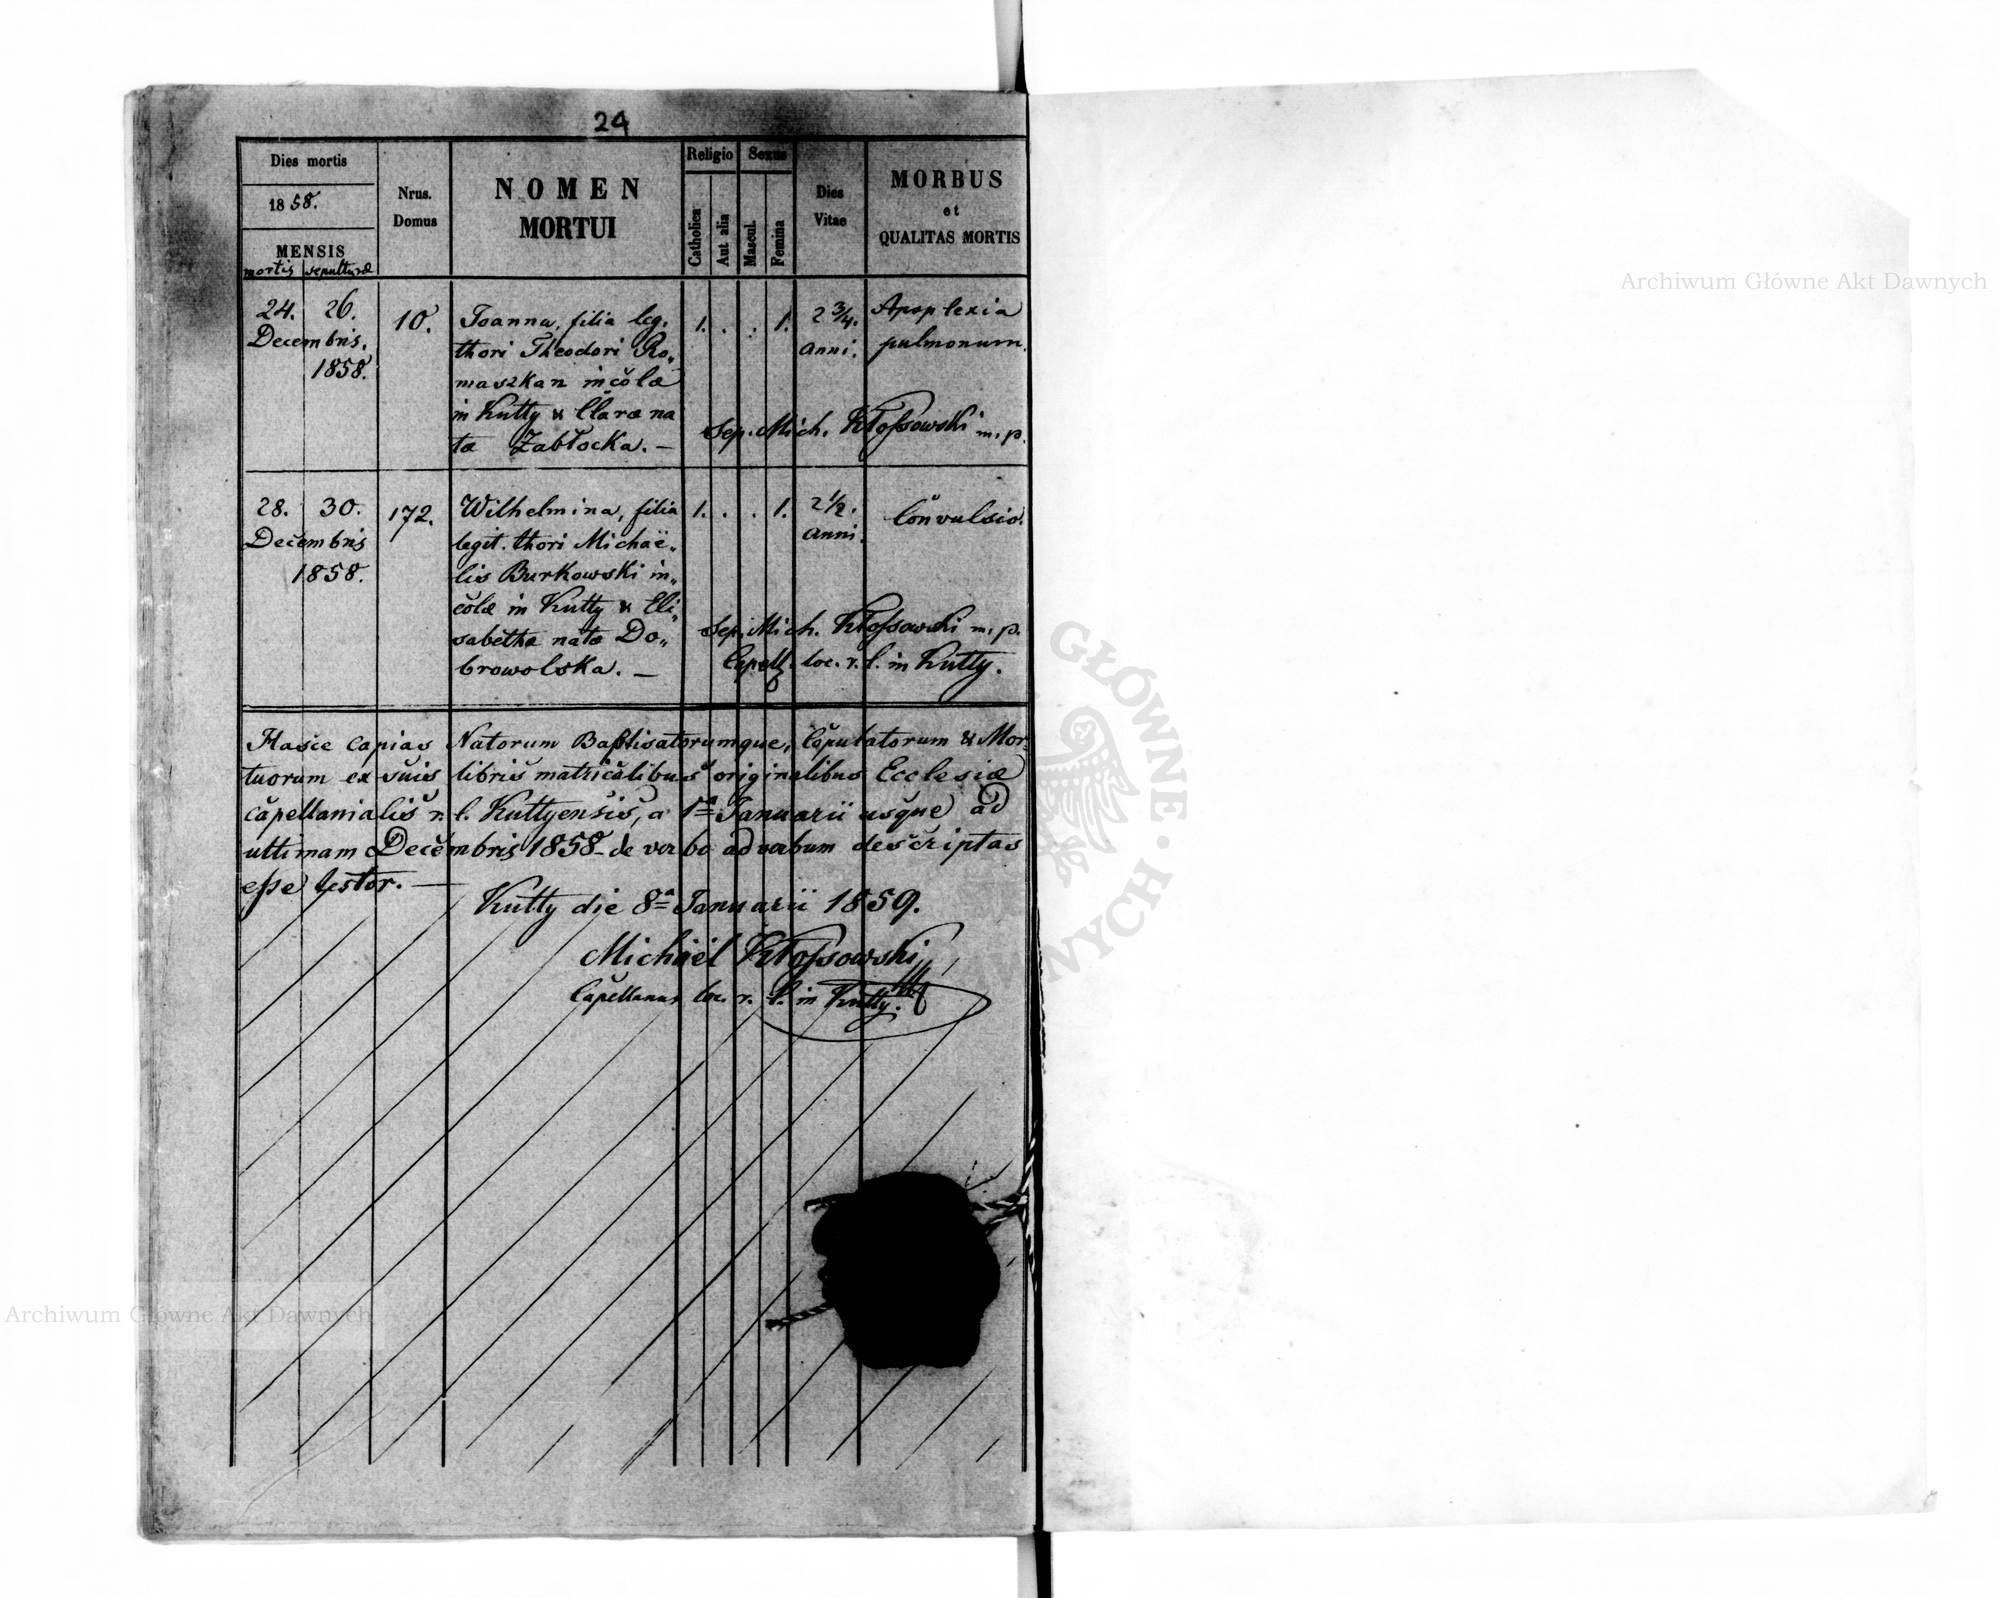 24
Dies mortis
1858.
MENSIS
mortis sepulturæ
Nrus.
Domus
NOMEN
MORTUI
Religio
Catholica
Aut alia
Sexus
Mascul.
Femina
Dies
Vitae
MORBUS
et
QUALITAS MORTIS
24. 26.
Decembris,
1858.
10.
Joanna, filia leg.
thori Theodori Ro„
maszkan incolæ
in Kutty & Claræ na
tæ Zabłocka. —
1. . . 1.
2 3/4.
anni.
Apoplexia
pulmonum.
Sep. Mich. Kłossowski m. p.
28. 30.
Decembris
1858.
172.
Wilhelmina, filia
legit. thori Michaë„
lis Burkowski in„
colæ in Kutty & Eli„
sabethæ natæ Do„
browolska. —
1. . . 1.
2 1/2.
anni.
Convulsio.
Sep. Mich. Kłossowski m. p.
Capell. loc. r. l. in Kutty.
Hasce copias Natorum Baptisatorumque, Copulatorum & Mor„
tuorum ex suis libris matricalibus originalibus Ecclesiæ
capellanialis r. l. Kuttyensis, a 1ª Januarii usque ad
ultimam Decembris 1858 de verbo ad verbum descriptas
esse testor. —
Kutty die 8ª Januarii 1859.
Michaël Kłossowski
Capellanus loc. r. l. in Kutty.
Archiwum Główne Akt Dawnych
GŁÓWNE · DAWNYCH
Archiwum Główne Akt Dawnych